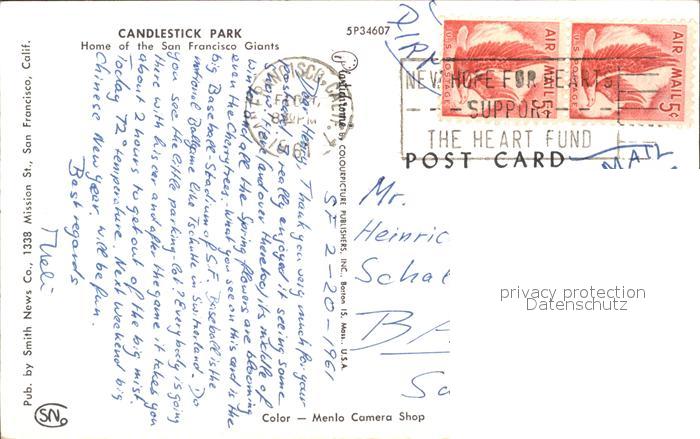 CANDLESTICK PARK
Home of the San Francisco Giants
5P34607
Pub. by Smith News Co., 1338 Mission St., San Francisco, Calif.
Plastichrome by COLOURPICTURE PUBLISHERS, INC., Boston 15, Mass., U.S.A.
SF 2-20-1961
Dear Henry, Thank you very much for your
postcard. I really enjoyed it seeing some
snow. Here (and over there too) its middle of
winter and all the Spring flowers are blooming
even the Cherrytrees. What you see on this card is the
big Baseball Stadium of S.F. Baseball is the
national Ballgame like Tschutte in Switzerland. Do
you see the little parking-lot? Everybody is going
there with his car and after the game it takes you
about 2 hours to get out of the big mist.
Today 72° temperature. Next weekend big
Chinese New year. will be fun.
Best regards
SN Co
Color — Menlo Camera Shop
U.S. POSTAGE
AIR MAIL 5¢
U.S. POSTAGE
AIR MAIL 5¢
SAN FRANCISCO, CALIF.
PM
1961
NEW HOPE FOR HEARTS
SUPPORT
THE HEART FUND
POST CARD
AIR
MAIL
Mr.
Heinric
Schal
BA
privacy protection
Datenschutz